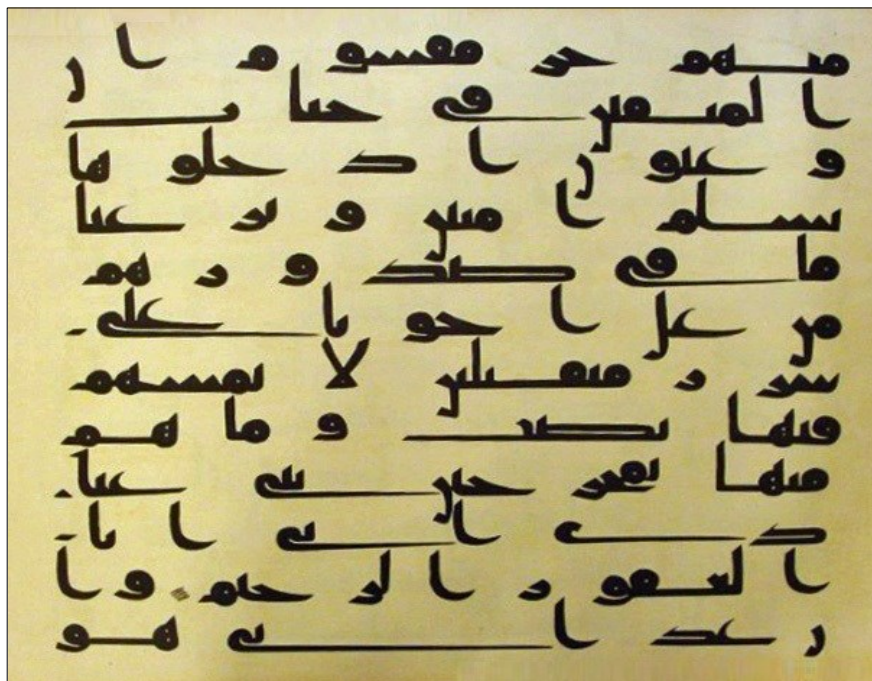 منهم جز مقسوم ان
المتقين في جنات
وعيون ادخلوها
بسلم امنين ونزعنا
ما في صدورهم
من غل اخونا على
سرر متقبلين لا يمسهم
فيها نصب وما هم
منها بمخرجين نبي عبا
دي اني انا
الغفور الرحيم وا
ن عذابي هو